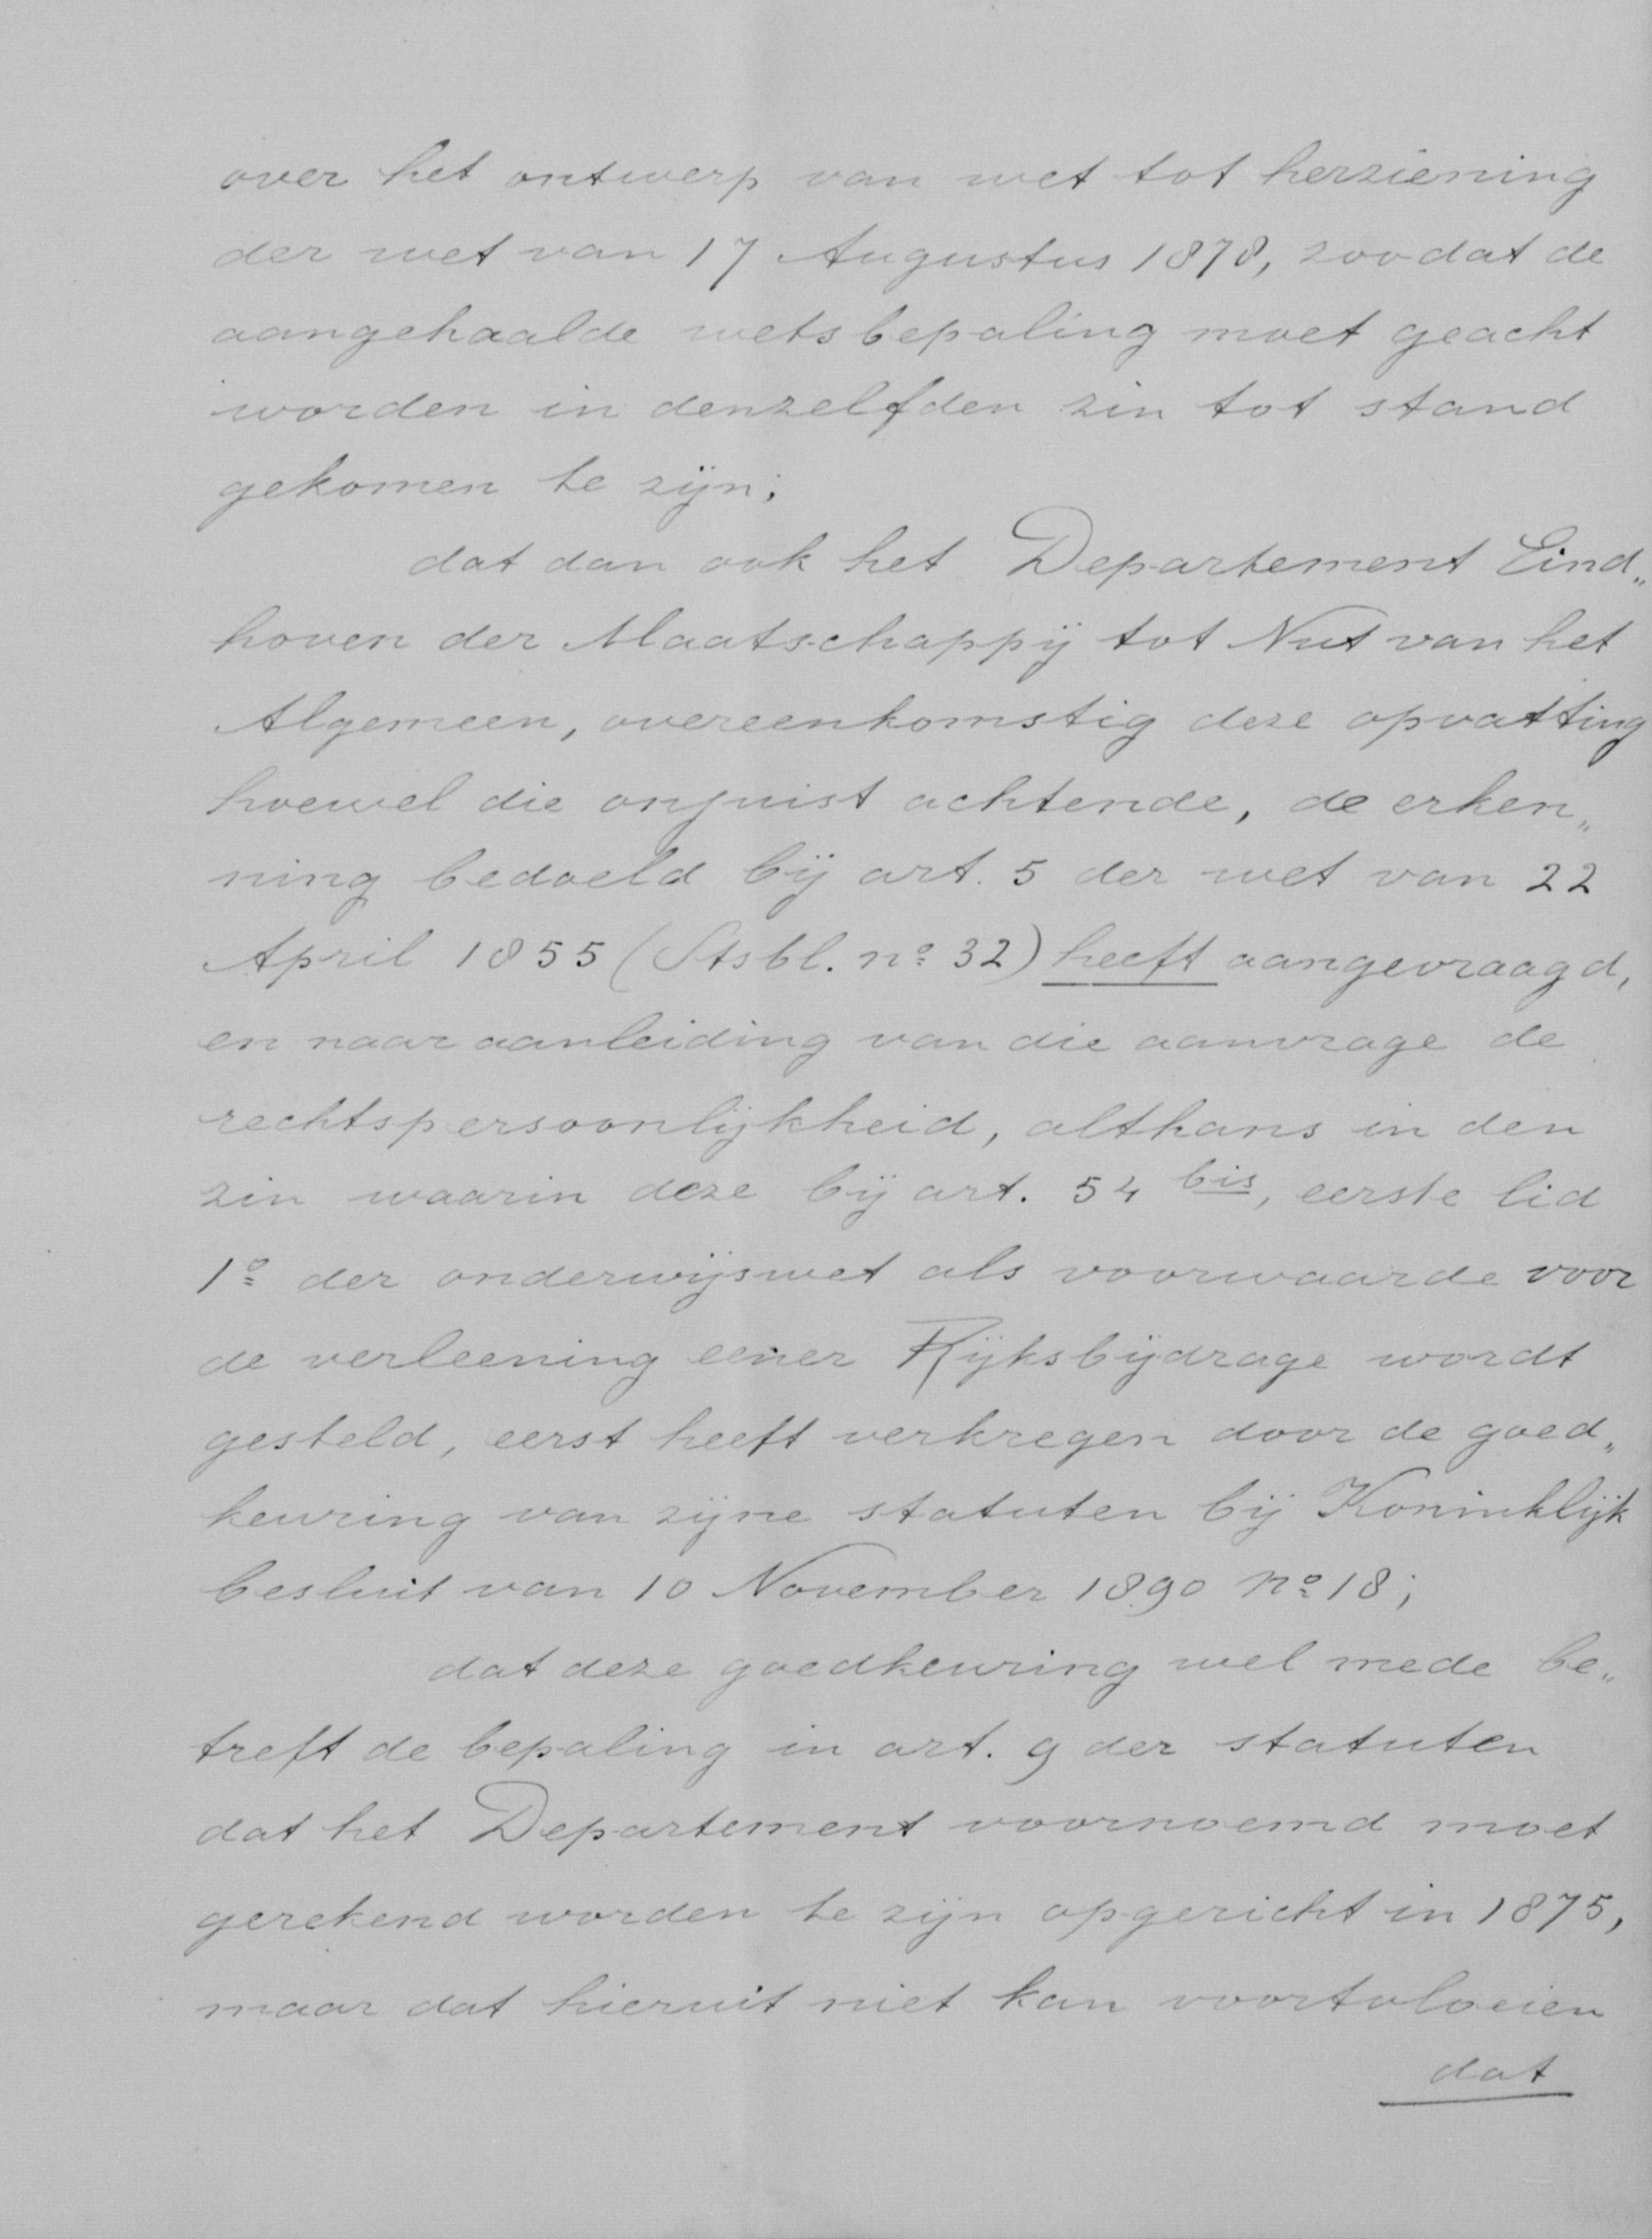 over het ontwerp van wet tot herziening
der wet van 17 Augustus 1878, zoodat de
aangehaalde wetsbepaling moet geacht
worden in denzelfden zin tot stand
gekomen te zijn;
dat dan ook het Departement Eind„
hoven der Maatschappij tot Nut van het
Algemeen, overeenkomstig deze opvatting
hoewel die onjuist achtende, de erken„
ning bedoeld bij art. 5 der wet van 22
April 1855 (Stsbl. nº 32) heeft aangevraagd,
en naar aanleiding van die aanvrage de
rechtspersoonlijkheid, althans in den
zin waarin deze bij art. 54 bis, eerste lid
1º der onderwijswet als voorwaarde voor
de verleening eener Rijksbijdrage wordt
gesteld, eerst heeft verkregen door de goed„
keuring van zijne statuten bij Koninklijk
besluit van 10 November 1890 nº 18;
dat deze goedkeuring wel mede be„
treft de bepaling in art. 9 der statuten
dat het Departement voornoemd moet
gerekend worden te zijn opgericht in 1875,
maar dat hieruit niet kan voortvloeien
dat